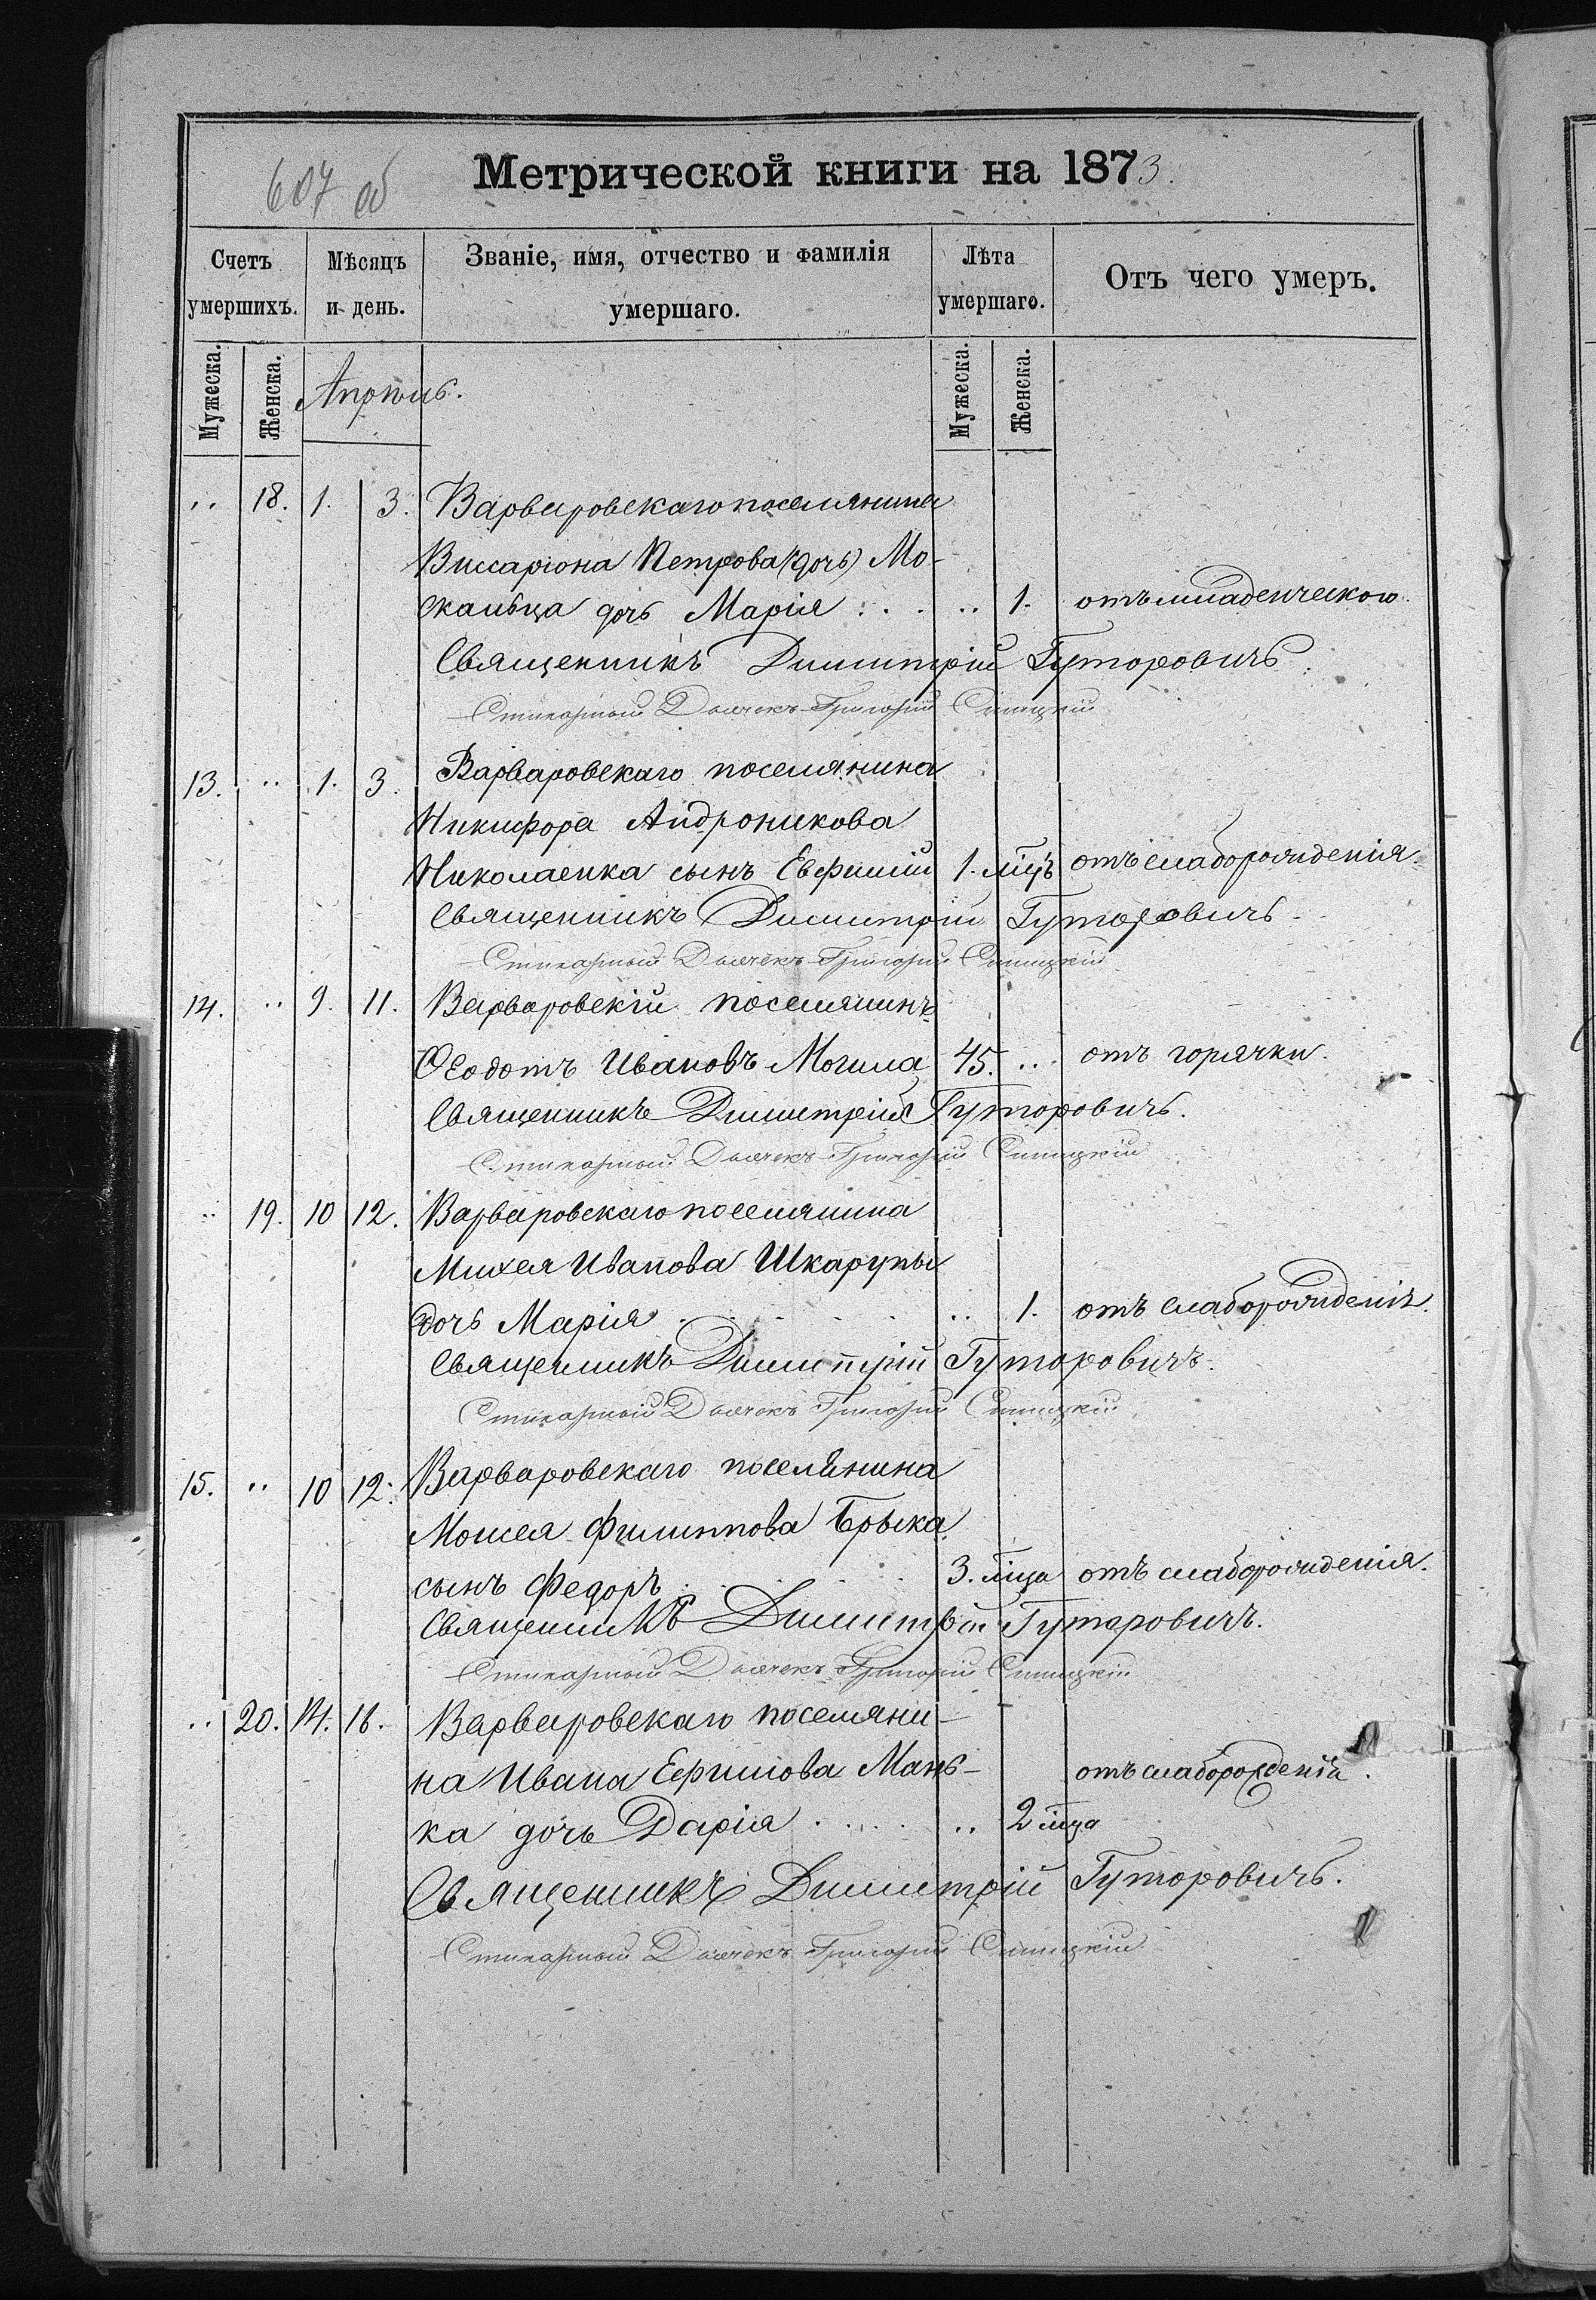 607 об
Метрической книги на 1873.
Счетъ умершихъ.
Мѣсяцъ и день.
Званіе, имя, отчество и фамилія умершаго.
Лѣта умершаго.
Отъ чего умеръ.
Мужеска. Женска. Апрѣль. Мужеска. Женска.
.. 18. 1. 3. Варваровскаго поселянина
Виссаріона Петрова (дочь) Мо-
скальца дочь Марія . . . .. 1. отъ младенческою.
Священникъ Димитрій Гуторовичъ.
Стихарный Дьячекъ Григорій
13. .. 1. 3. Варваровскаго поселянина
Никифора Андроникова
Николаенка сынъ Евфимій 1. мцъ отъ слаборожденія.
Священникъ Димитрій Гуторовичъ.
Стихарный Дьячекъ Григорій
14. .. 9. 11. Варваровскій поселянинъ
Ѳеодотъ Ивановъ Могила 45. .. отъ горячки.
Священникъ Димитрій Гуторовичъ.
Стихарный Дьячекъ Григорій
.. 19. 10 12. Варваровскаго поселянина
Михея Иванова Шкарупы
дочь Марія . . . . . .. 1. отъ слаборожденія.
Священникъ Димитрій Гуторовичъ.
Стихарный Дьячекъ Григорій
15. .. 10 12. Варваровскаго поселянина
Моисея Филиппова Брыка
сынъ Федоръ . . . . . 3. мца отъ слаборожденія.
Священникъ Димитрій Гуторовичъ.
Стихарный Дьячекъ Григорій
.. 20. 14. 16. Варваровскаго поселяни-
на Ивана Ефимова Мань- отъ слаборожденія.
ка дочь Дарія . . . . .. 2 мца
Священникъ Димитрій Гуторовичъ.
Стихарный Дьячекъ Григорій